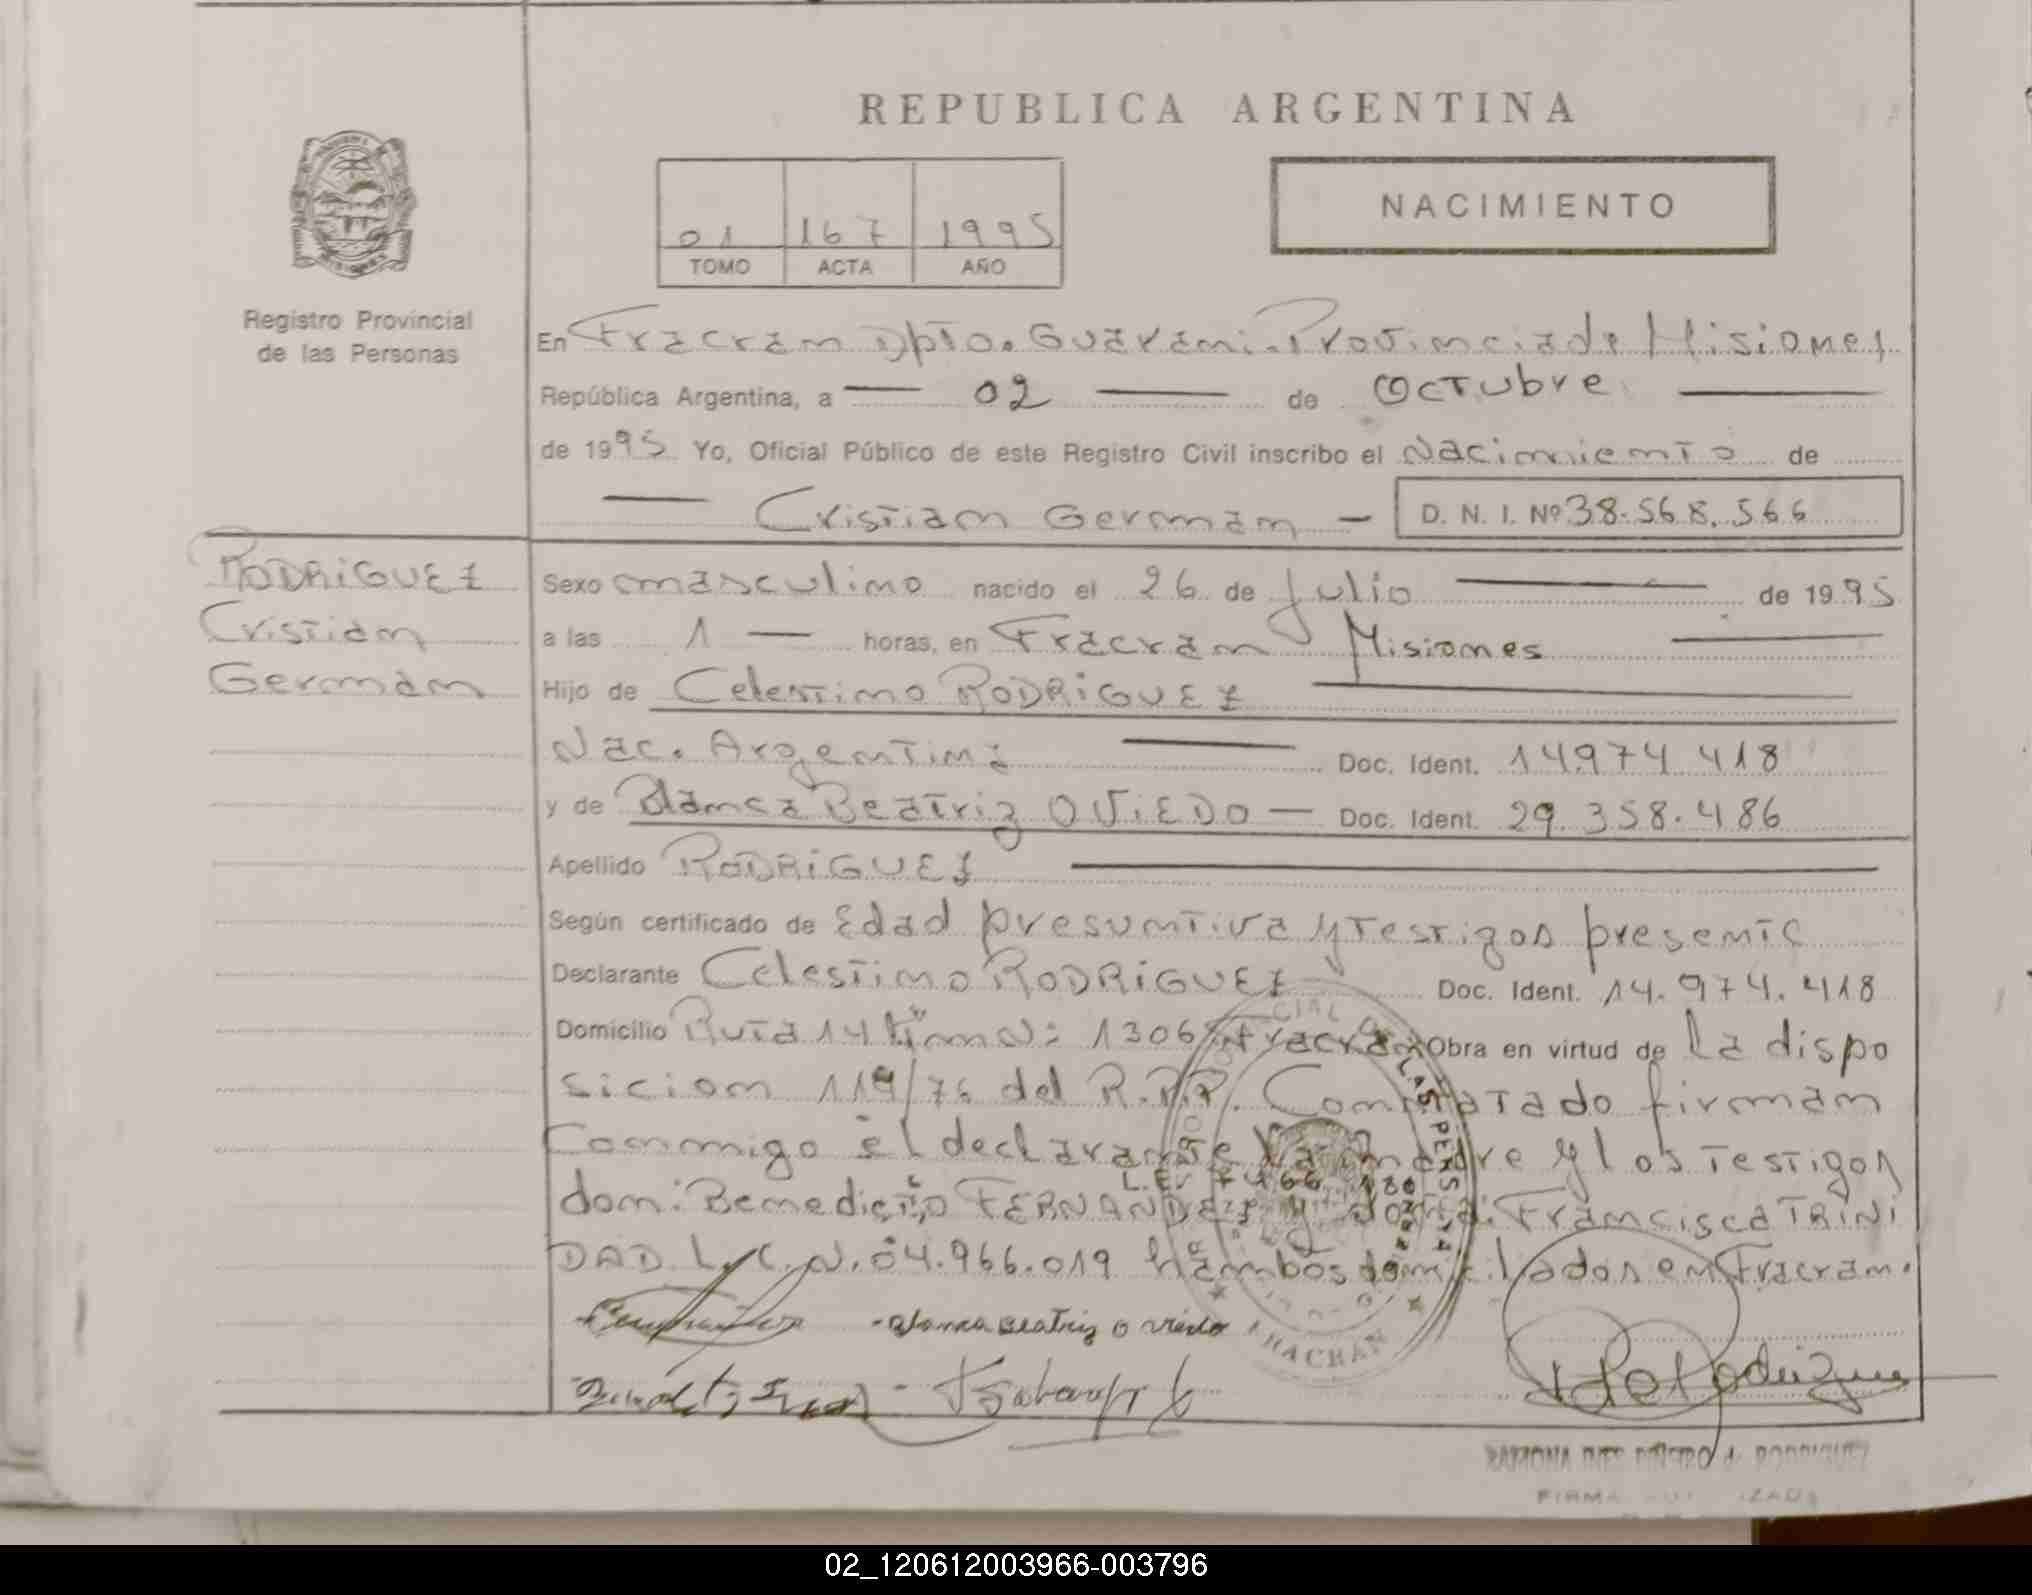 REPUBLICA ARGENTINA
NACIMIENTO
01 167 1995
TOMO ACTA AÑO
Registro Provincial
de las Personas
En Fracran Dpto. Guarani. Provincia de Misiones
República Argentina, a — 02 — de Octubre —
de 1995 Yo, Oficial Público de este Registro Civil inscribo el Nacimiento de
— Cristian German — D. N. I. Nº 38.568.566
RODRiGUEZ
Cristian
German
Sexo masculino nacido el 26 de Julio — de 1995
a las 1 — horas, en Fracran Misiones —
Hijo de Celestino RODRiGUEZ —
Nac. Argentina — Doc. Ident. 14.974.418
y de Blanca Beatriz OViEDO — Doc. Ident. 29.358.486
Apellido RODRiGUEZ —
Según certificado de Edad presuntiva y Testigos presente
Declarante Celestino RODRiGUEZ Doc. Ident. 14.974.418
Domicilio Ruta 14 Km N: 1306 Fracran Obra en virtud de La dispo
sicion 119/76 del R.P.P. Constatado firman
conmigo el declarante La madre y los Testigos
don: Benedicto FERNANDEZ L.E. 7.466.180 y doña: Francisca TRiNi
DAD L.C.N. 04.966.019 hambos domiciliados en Fracran.
Blanca Beatriz Oviedo
FRACRAN
LAS PERSONAS
RAMONA INES PIÑEIRO de RODRIGUEZ
FIRMA AUTORIZADA
02_120612003966-003796